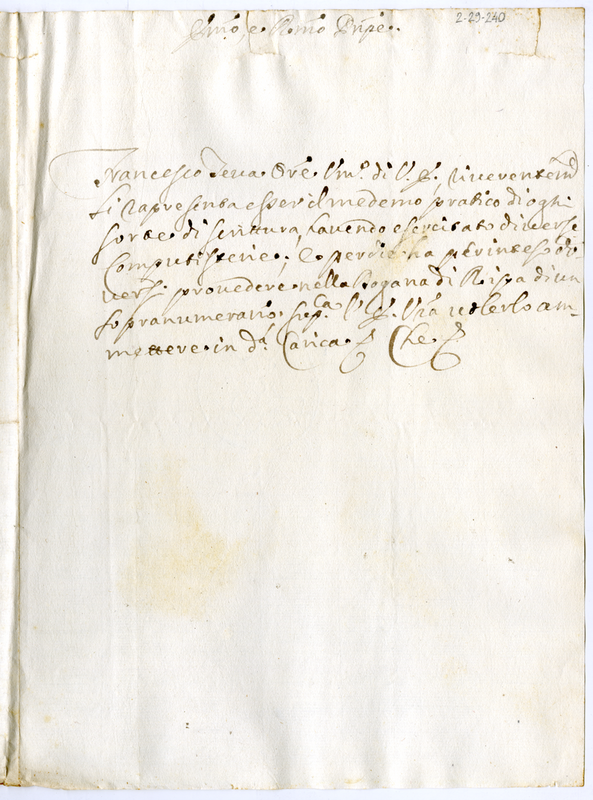 2-29-240
Em̃o, e Rm̃o Prñpe.
Francesco Ore Um̃o. di V. E., riverentem̃
li rapresenta esser il medemo pratico di ogni
sorte di scrittura, havendo esercitato diverse
Computisterie, e perche ha p inteso do-
versi provedere nella Dogana di Ripa di un
sopranumerario, sup.ca V. E. volerlo am-
mettere in d.ª Carica. Che